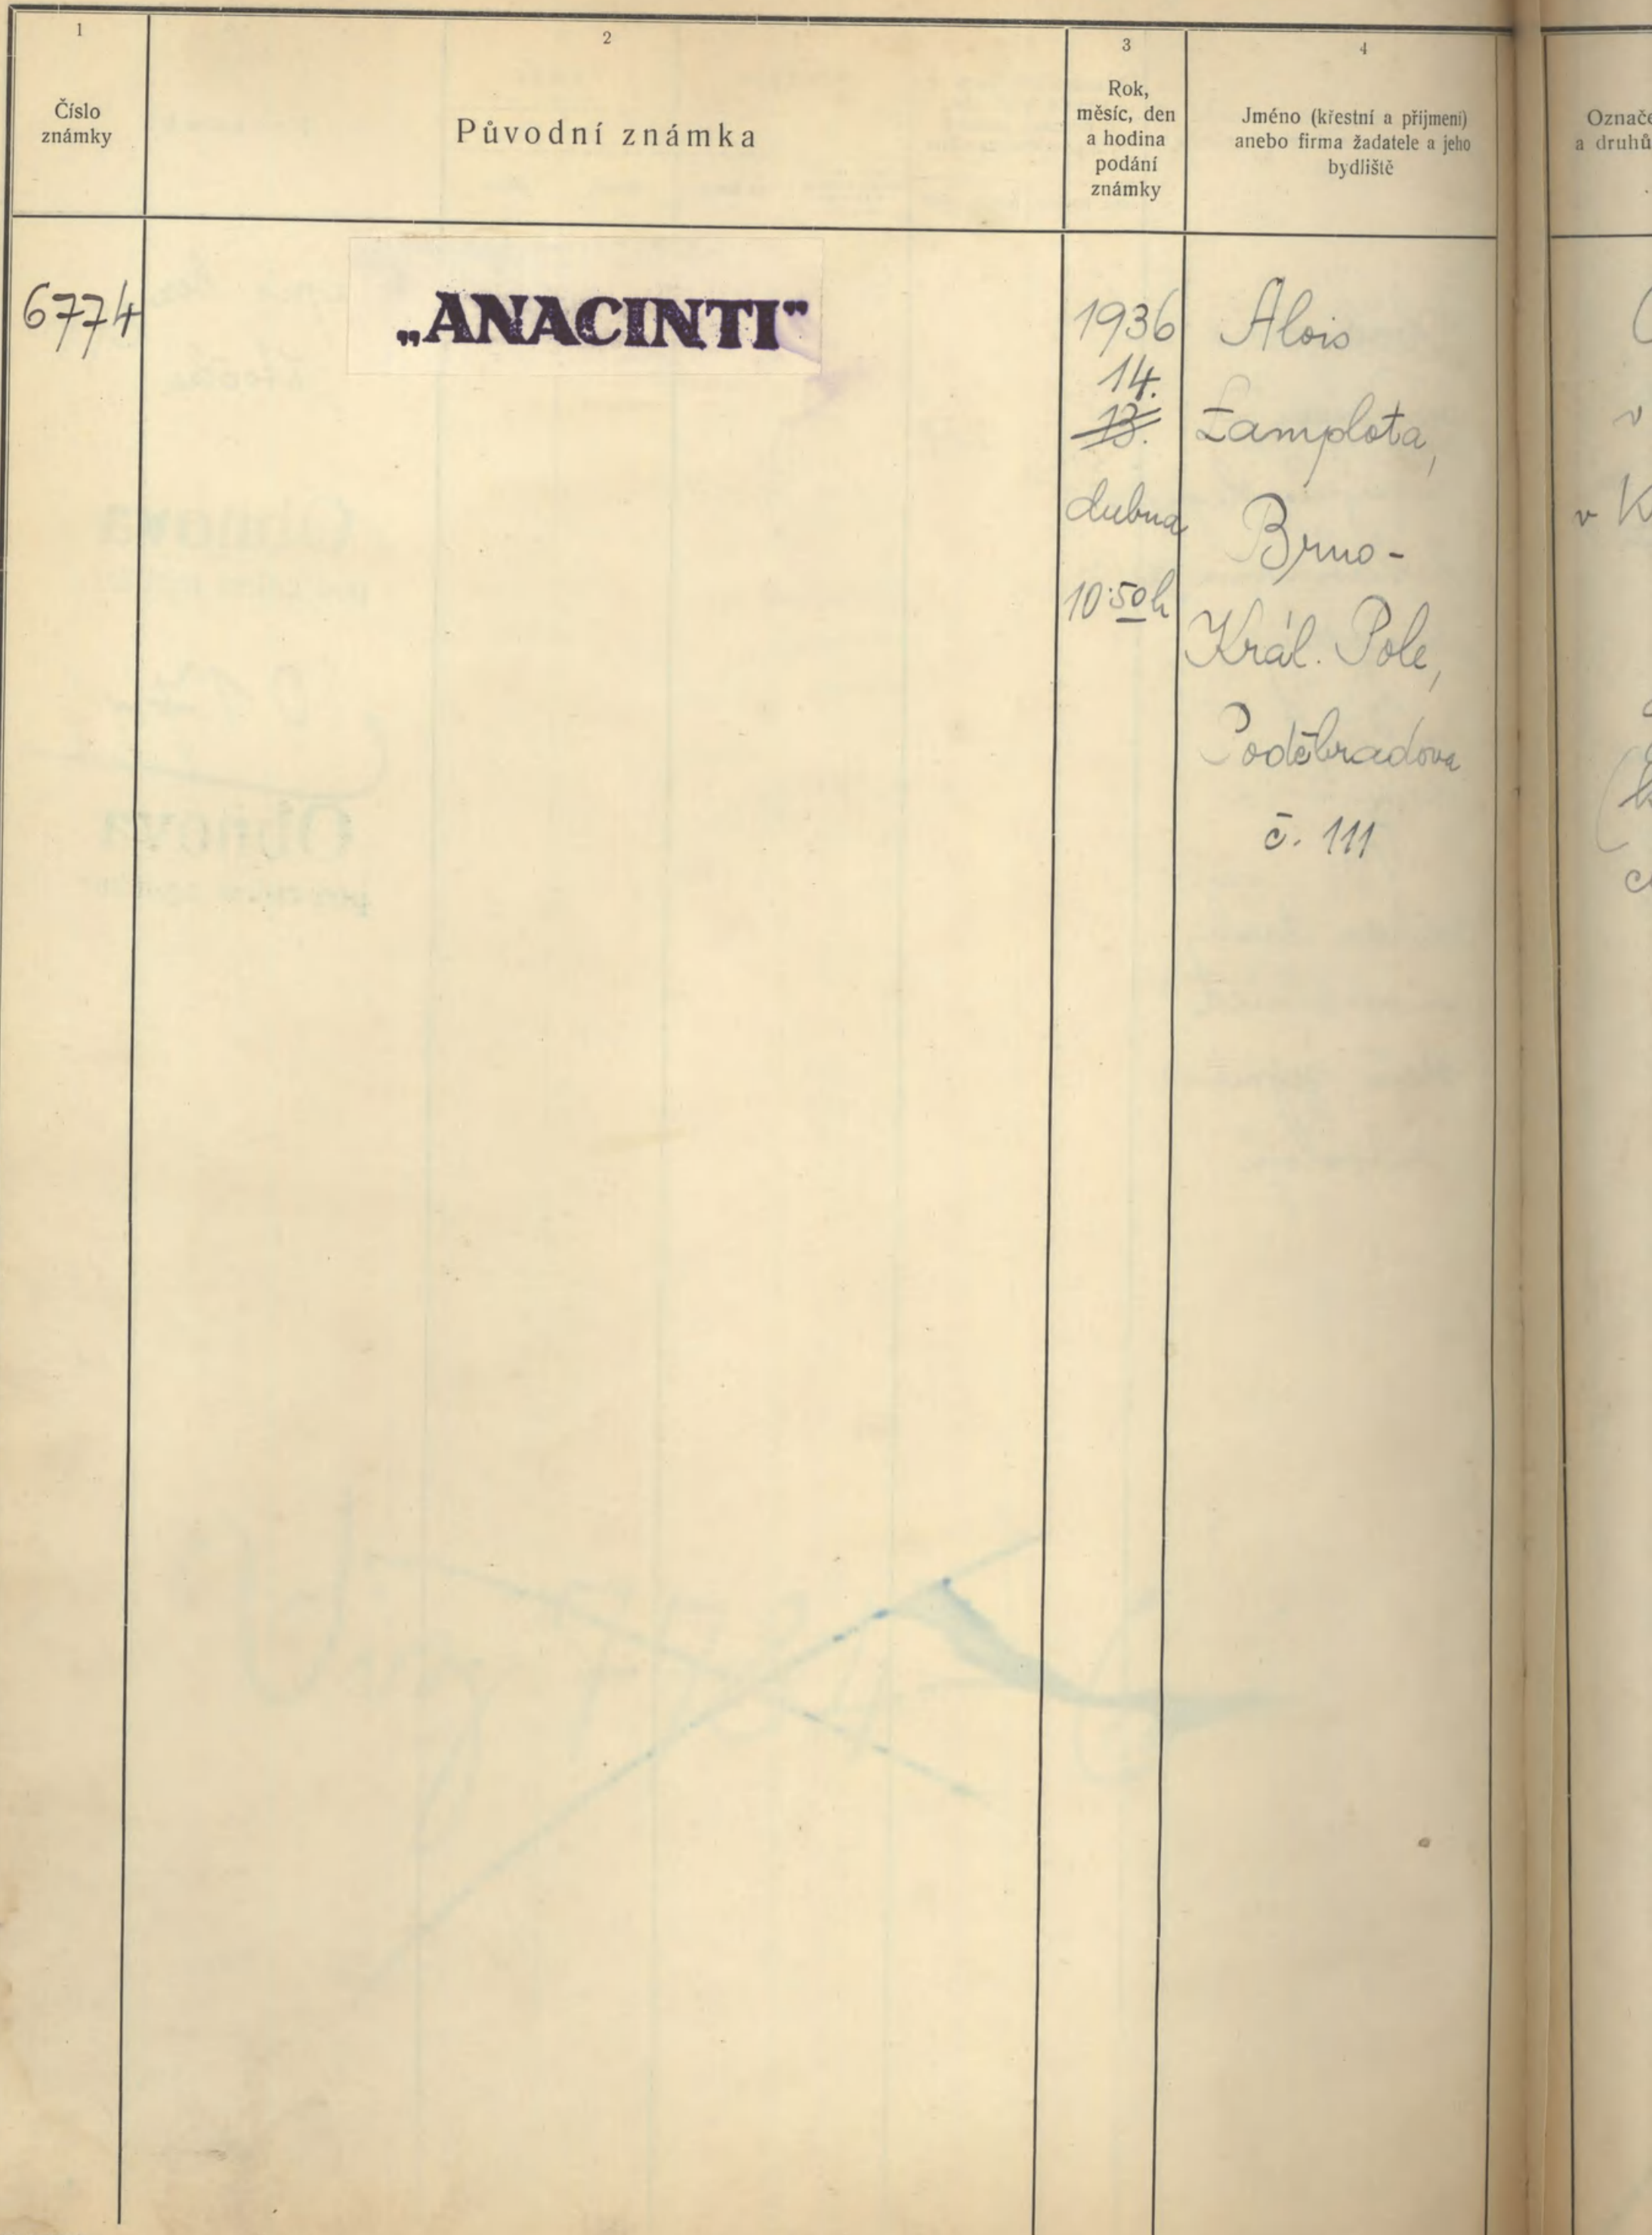 1
Číslo
známky
2
Původní známka
3
Rok,
měsíc, den
a hodina
podání
známky
4
Jméno (křestní a přijmení)
anebo firma žadatele a jeho
bydliště
Označe
a druhů
6774
„ANACINTI"
1936
14.
13.
dubna
10:50 h
Alois
Zamplota,
Brno-
Král. Pole,
Poděbradova
č. 111
v
v K